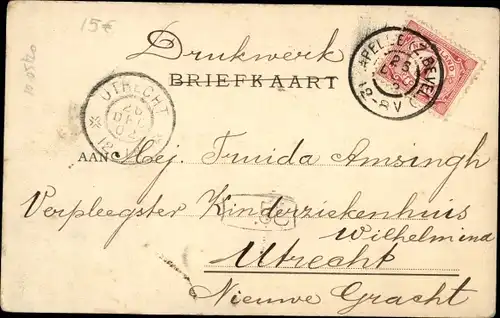 15€
Drukwerk
BRIEFKAART
UTRECHT
26
DEC
02
12
KAPELLE (Z. BEVEL
25
12-8V
AAN Mej. Truida Amsingh
Verpleegster Kinderziekenhuis
Wilhelmina
Utrecht
Nieuwe Gracht